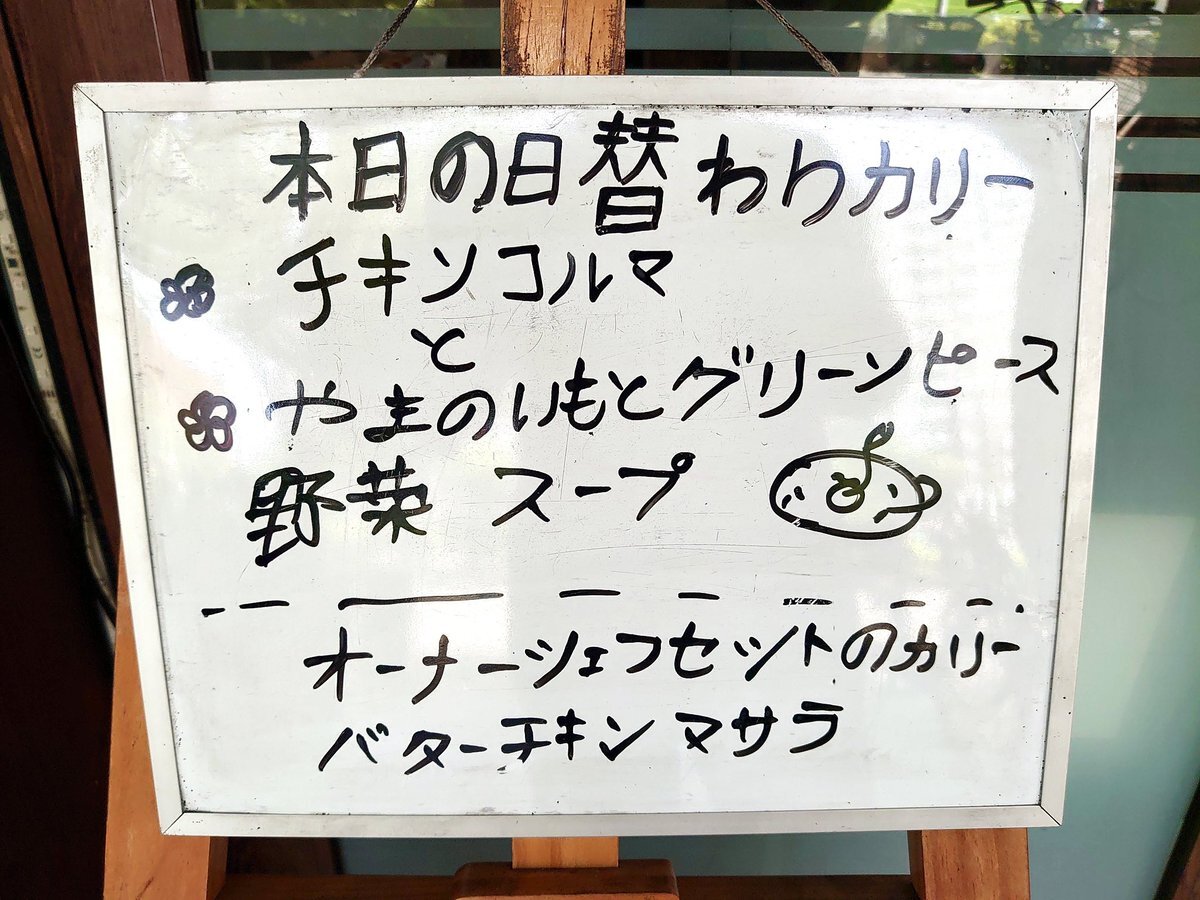 本日の日替わりカリー
チキンコルマ
と
やまのいもとグリーンピース
野菜 スープ
オーナーシェフセットのカリー
バターチキンマサラ